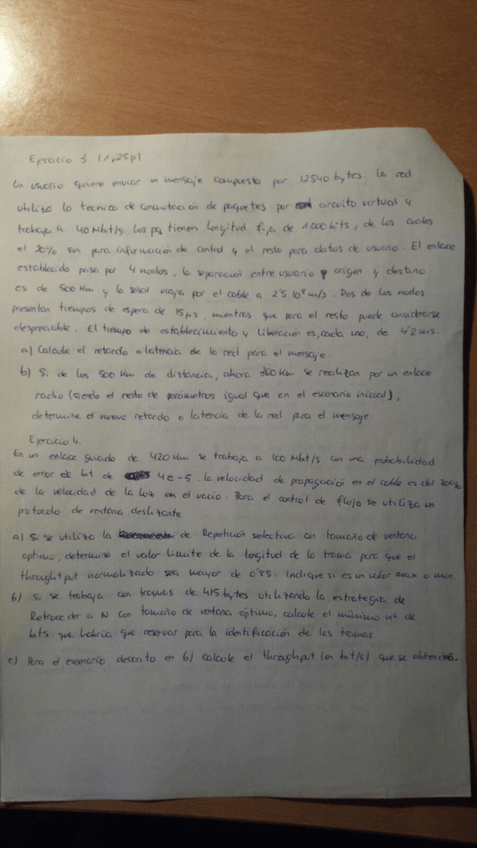 Ejercicio 3. (1,25p)
Un usuario quiere enviar un mensaje compuesto por 12540 bytes. La red
utiliza la tecnica de conmutación de paquetes por circuito virtual y
trabaja a 40 Mbit/s. Los pq tienen longitud fija de 1.000 bits, de los cuales
el 20% son para información de control y el resto para datos de usuario. El enlace
establecido pasa por 4 nodos, la separación entre usuario origen y destino
es de 500 Km y la señal viaja por el cable a 2'5 10⁸ m/s. Dos de los nodos
presentan tiempos de espera de 15 μs, mientras que para el resto puede considerarse
despreciable. El tiempo de establecimiento y liberación es, cada uno, de 4'2 ms.
a) Calcule el retardo o latencia de la red para el mensaje.
b) Si de los 500 Km de distancia, ahora 360 Km se realizan por un enlace
radio (siendo el resto de parámetros igual que en el escenario inicial),
determine el nuevo retardo o latencia de la red para el mensaje.
Ejercicio 4.
En un enlace guiado de 420 Km se trabaja a 100 Mbit/s con una probabilidad
de error de bit de 4e-5. La velocidad de propagación en el cable es del 70%
de la velocidad de la luz en el vacio. Para el control de flujo se utiliza un
protocolo de ventana deslizante
a) Si se utiliza la de Repetición selectiva con tamaño de ventana
optimo, determine el valor limite de la longitud de la trama para que el
throughtput normalizado sea mayor de 0'85. Indique si es un valor max o min.
b) Si se trabaja con tramas de 415 bytes utilizando la estrategia de
Retroceder a N con tamaño de ventana optimo, calcule el minimo nº de
bits que habria que reservar para la identificación de las tramas.
c) Para el escenario descrito en b) calcule el throughput (en bit/s) que se